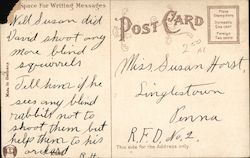 Space For Writing Messages
Well Susan did
David shoot any
more blind
squirrels
Tell him if he
sees any blind
rabbits not to
shoot them but
help them to his
R.H.
Made in Germany
POST CARD
Miss Susan Horst,
Linglestown
Penna
R.F.D. No. 2.
This side for the Address only.